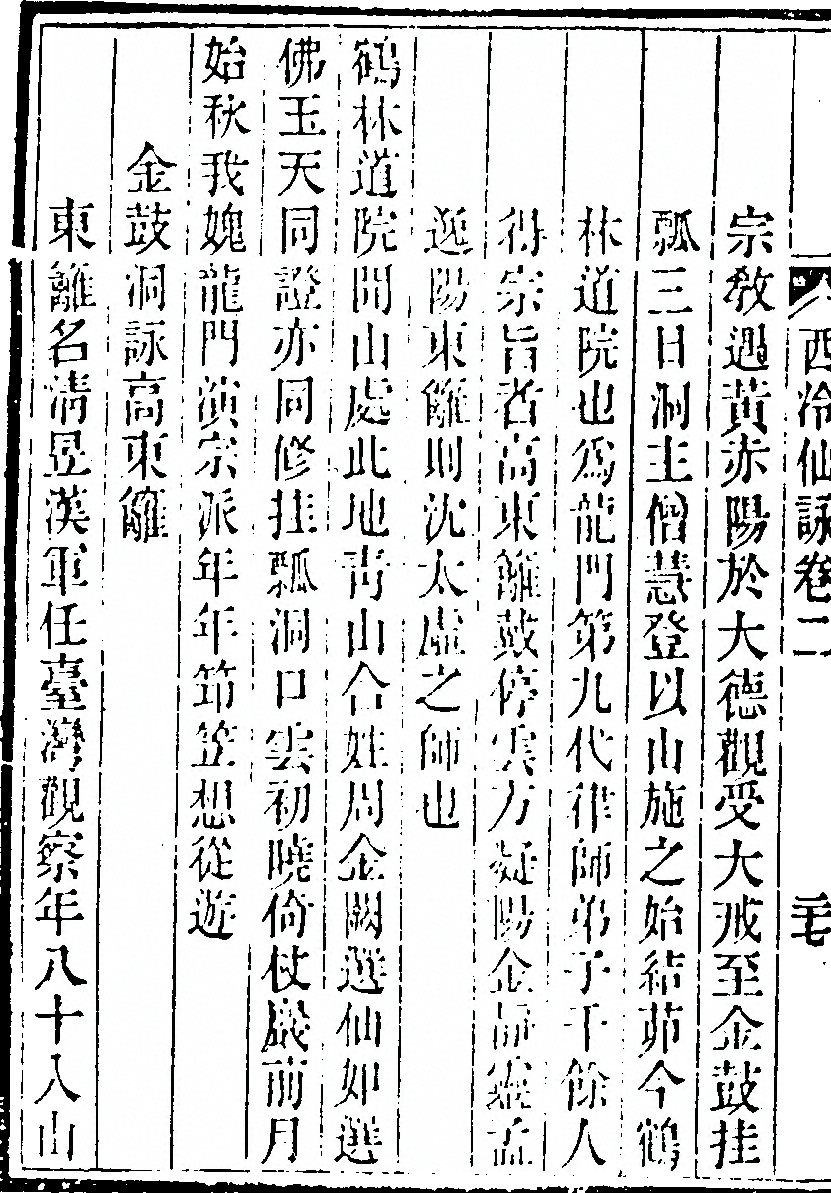 西泠仙詠卷二
二七
宗敎遇黃赤陽於大德觀受大戒至金鼓挂
瓢三日洞主僧慧登以山施之始結茆今鶴
林道院也爲龍門第九代律師弟子千餘人
得宗旨者高東籬戴停雲方凝陽金靜靈孟
逸陽東籬則沈太虛之師也
鶴林道院開山處此地靑山合姓周金闕選仙如選
佛玉天同證亦同修挂瓢洞口雲初曉倚杖巖前月
始秋我媿龍門演宗派年年笻笠想從遊
金鼓洞詠高東籬
東籬名淸昱漢軍任臺灣觀察年八十八山